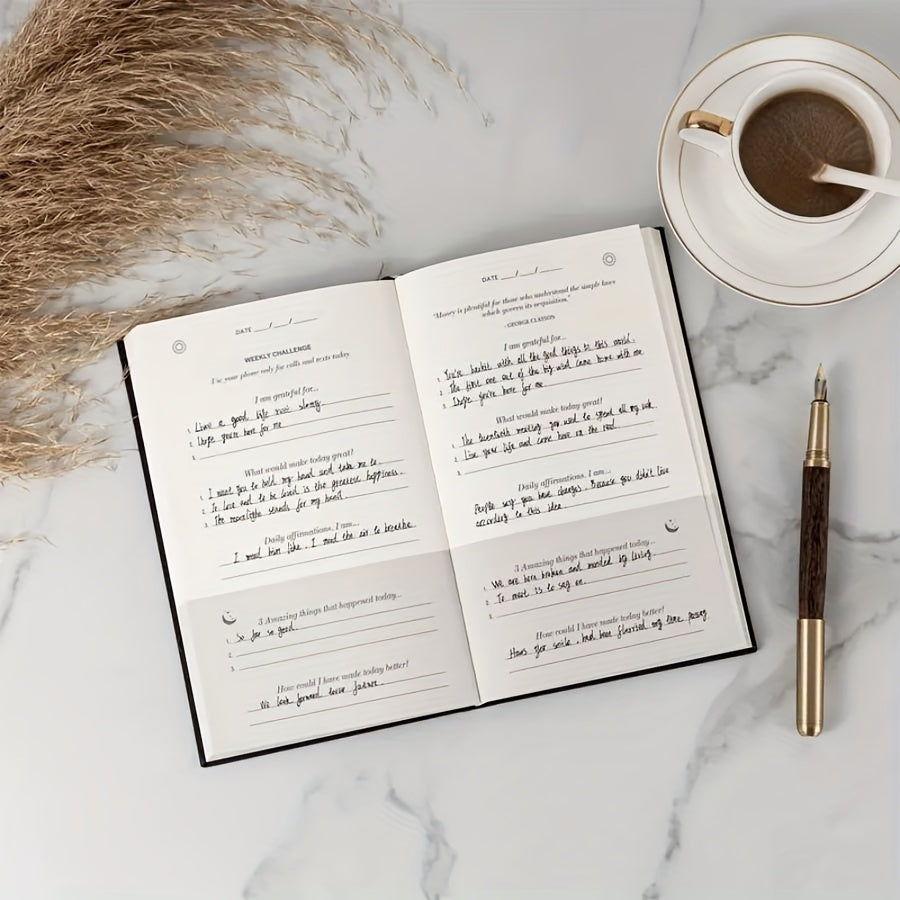 DATE __/__/____
WEEKLY CHALLENGE
Use your phone only for calls and texts today.
I am grateful for...
1. Live a good life
2. I hope you're here for me
3.
What would make today great?
1. I want you to hold my hand and take me to
2. To love and to be loved is the greatest happiness.
3. The moonlight stands for my heart.
Daily affirmations. I am...
I need him like I need the air to breathe.
3 Amazing things that happened today...
1. So far so good.
2.
3.
How could I have made today better?
We look forward
DATE __/__/____
"Money is plentiful for those who understand the simple laws
which govern its acquisition."
- GEORGE CLASON
I am grateful for...
1. You're with all the good things in this world.
2. The first one out of the came home with me
3. I hope you're here for me.
What would make today great?
1. The meeting you used to spend all my luck.
2. Live your life and come here on the road.
3.
Daily affirmations. I am...
People say you have changes. Because you didn't live
according to this idea
3 Amazing things that happened today...
1. We are born broken and mended by living.
2. To meet is to say on.
3.
How could I have made today better?
smile, had been my time